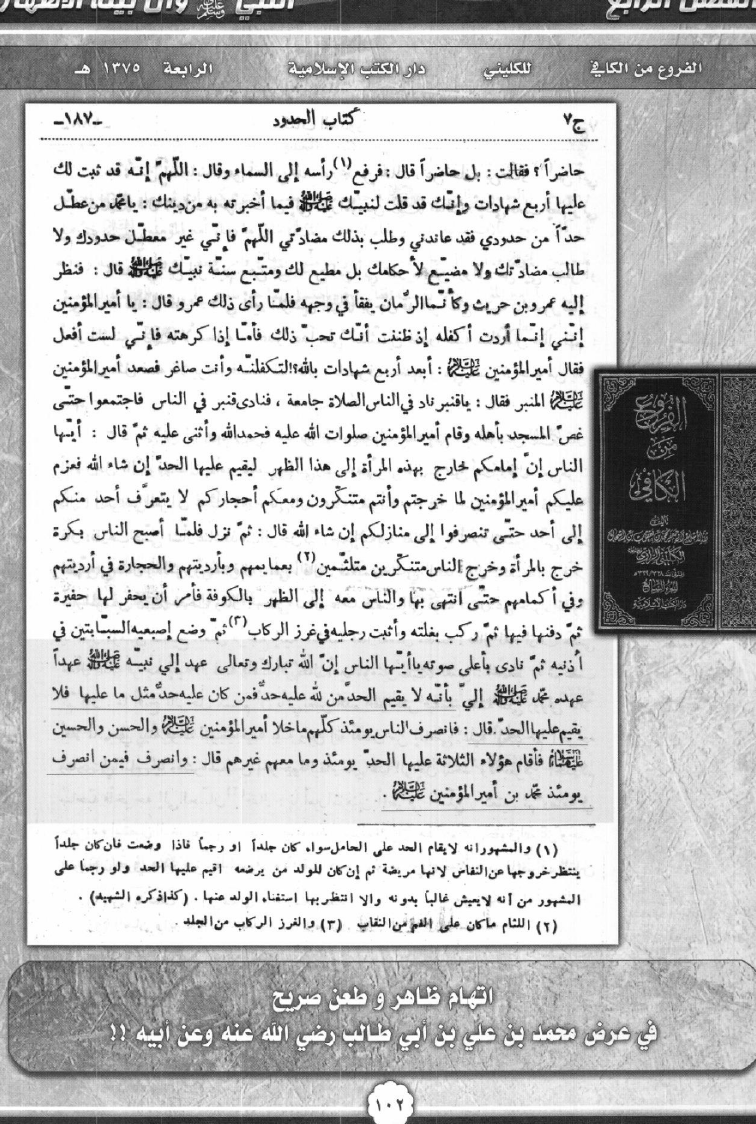 الفصل الرابع
النبي ﷺ وآل بيته الأطهار
الفروع من الكافي للكليني دار الكتب الإسلامية الرابعة ١٣٧٥ هـ
ج٧ كتاب الحدود -١٨٧-
حاضراً ؟ فقالت : بل حاضراً قال : فرفع (١) رأسه إلى السماء وقال : اللّهمّ إنّه قد ثبت لك
عليها أربع شهادات وإنّك قد قلت لنبيّك ﷺ فيما أخبرته به من دينك : يا محمّد من عطّل
حدّاً من حدودي فقد عاندني وطلب بذلك مضادّتي اللّهمّ فإنّي غير معطّل حدودك ولا
طالب مضادّتك ولا مضيّع لأحكامك بل مطيع لك ومتّبع سنّة نبيّك ﷺ قال : فنظر
إليه عمرو بن حريث وكأنّما الرّمان يفقأ في وجهه فلمّا رأى ذلك عمرو قال : يا أمير المؤمنين
إنّني إنّما أردت أكفله إذ ظننت أنّك تحبّ ذلك فأمّا إذا كرهته فإنّي لست أفعل
فقال أمير المؤمنين عليه السلام : أبعد أربع شهادات بالله ؟! لتكفلنّه وأنت صاغر فصعد أمير المؤمنين
عليه السلام المنبر فقال : يا قنبر ناد في الناس الصلاة جامعة ، فنادى قنبر في الناس فاجتمعوا حتّى
غصّ المسجد بأهله وقام أمير المؤمنين صلوات الله عليه فحمد الله وأثنى عليه ثمّ قال : أيّها
الناس إنّ إمامكم خارج بهذه المرأة إلى هذا الظهر ليقيم عليها الحدّ إن شاء الله فعزم
عليكم أمير المؤمنين لما خرجتم وأنتم متنكّرون ومعكم أحجاركم لا يتعرّف أحد منكم
إلى أحد حتّى تنصرفوا إلى منازلكم إن شاء الله قال : ثمّ نزل فلمّا أصبح الناس بكرة
خرج بالمرأة وخرج الناس متنكّرين متلثّمين (٢) بعمايمهم وبأرديتهم والحجارة في أرديتهم
وفي أكمامهم حتّى انتهى بها والناس معه إلى الظهر بالكوفة فأمر أن يحفر لها حفيرة
ثمّ دفنها فيها ثمّ ركب بغلته وأثبت رجليه في غرز الركاب (٣) ثمّ وضع إصبعيه السبّابتين في
أذنيه ثمّ نادى بأعلى صوته يا أيّها الناس إنّ الله تبارك وتعالى عهد إلى نبيّه ﷺ عهداً
عهده محمّد ﷺ إليّ بأنّه لا يقيم الحدّ من لله عليه حدّ فمن كان عليه حدّ مثل ما عليها فلا
يقيم عليها الحدّ قال : فانصرف الناس يومئذ كلّهم ما خلا أمير المؤمنين عليه السلام والحسن والحسين
عليهما السلام فأقام هؤلاء الثلاثة عليها الحدّ يومئذ وما معهم غيرهم قال : وانصرف فيمن انصرف
يومئذ محمّد بن أمير المؤمنين عليه السلام .
(١) والمشهور انه لا يقام الحد على الحامل سواء كان جلداً او رجماً فاذا وضعت فان كان جلداً
ينتظر خروجها عن النفاس لانها مريضة ثم إن كان للولد من يرضعه اقيم عليها الحد ولو رجما على
المشهور من أنه لا يعيش غالباً بدونه والا انتظر بها استغناء الولد عنها . (كذا ذكره الشهيد) .
(٢) اللثام ما كان على الفم من النقاب (٣) والغرز الركاب من الجلد .
الفروع
من
الكافي
اتهام ظاهر و طعن صريح
في عرض محمد بن علي بن أبي طالب رضي الله عنه وعن أبيه !!
١٠٢